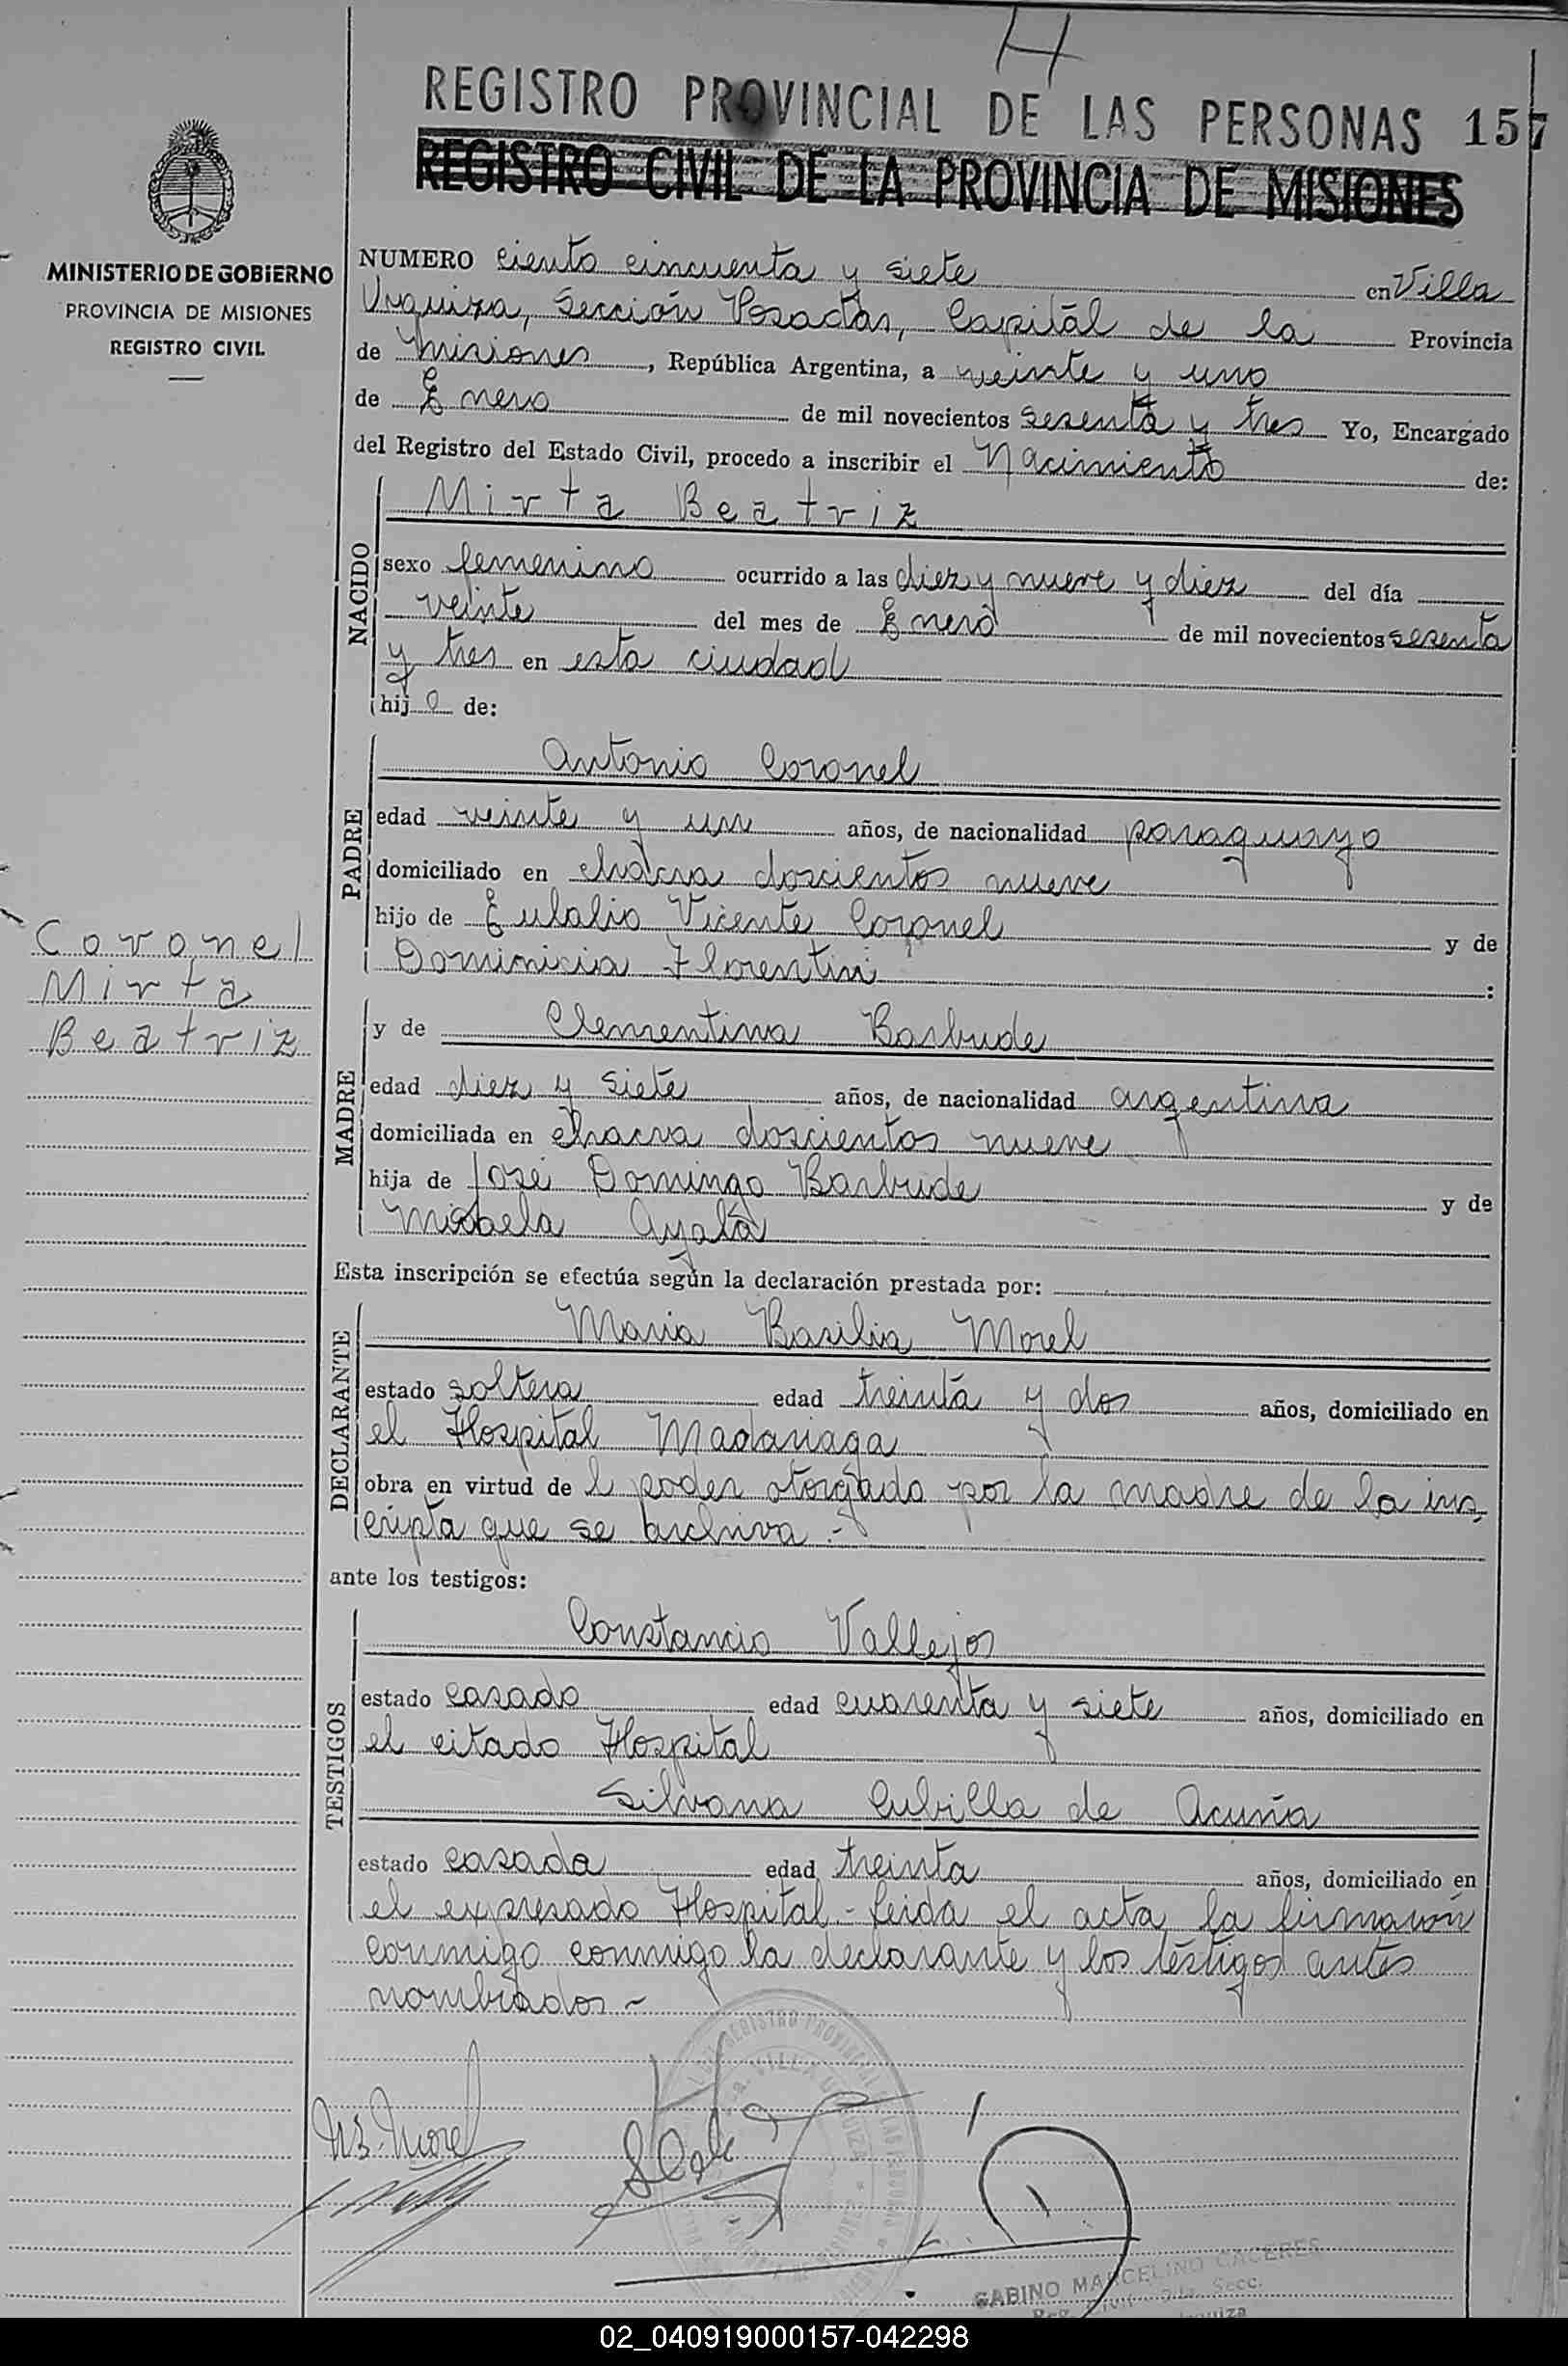 H
REGISTRO PROVINCIAL DE LAS PERSONAS 157
REGISTRO CIVIL DE LA PROVINCIA DE MISIONES
MINISTERIO DE GOBIERNO
PROVINCIA DE MISIONES
REGISTRO CIVIL
NUMERO ciento cincuenta y siete en Villa
Urquiza, Sección Posadas, Capital de la Provincia
de Misiones, República Argentina, a veinte y uno
de Enero de mil novecientos sesenta y tres Yo, Encargado
del Registro del Estado Civil, procedo a inscribir el Nacimiento de:
NACIDO
Mirta Beatriz
sexo femenino ocurrido a las diez y nueve y diez del día
veinte del mes de Enero de mil novecientos sesenta
y tres en esta ciudad
hija de:
PADRE
Antonio Coronel
edad veinte y un años, de nacionalidad paraguayo
domiciliado en chacra doscientos nueve
hijo de Eulalio Vicente Coronel y de
Dominicia Florentin :
Coronel
Mirta
Beatriz
MADRE
y de Clementina Barbude
edad diez y siete años, de nacionalidad argentina
domiciliada en chacra doscientos nueve
hija de José Domingo Barbude y de
Ayala
Esta inscripción se efectúa según la declaración prestada por:
DECLARANTE
Maria Basilia Morel
estado soltera edad treinta y dos años, domiciliado en
el Hospital Madariaga
obra en virtud de l poder otorgado por la madre de la ins
cripta que se archiva.-
ante los testigos:
TESTIGOS
Constancio Vallejos
estado casado edad cuarenta y siete años, domiciliado en
el citado Hospital
Silvana Cubilla de Acuña
estado casada edad treinta años, domiciliado en
el expresado Hospital.- Leida el acta, la firmaron
conmigo conmigo la declarante y los testigos antes
nombrados -
M B. Morel
SABINO MARCELINO CACERES
02_040919000157-042298